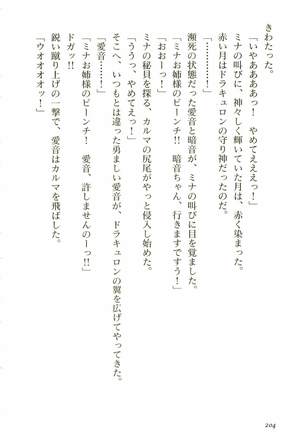 きわたった。
「いやああああ！　やめてえええっ！」
ミナの叫びに、神々しく輝いていた月は、赤く染まった。
赤い月はドラキュロンの守り神だったのだ。
「………！」
瀕死の状態だった愛音と暗音が、ミナの叫びに目を覚ました。
「ミナお姉様のピーンチ!!　暗音ちゃん、行きますですう！」
「おおーっ！」
「ううっ、やめてえっ！」
ミナの秘貝を探る、カルマの尻尾がやっと侵入し始めた。
そこへ、いつもとは違った勇ましい愛音が、ドラキュロンの翼を広げてやってきた。
「愛音…！」
「ミナお姉様のピーンチ！　愛音、許しませんのーっ!!」
ドガッ!!
鋭い蹴り上げの一撃で、愛音はカルマを飛ばした。
「ウオオオオッ！」
204